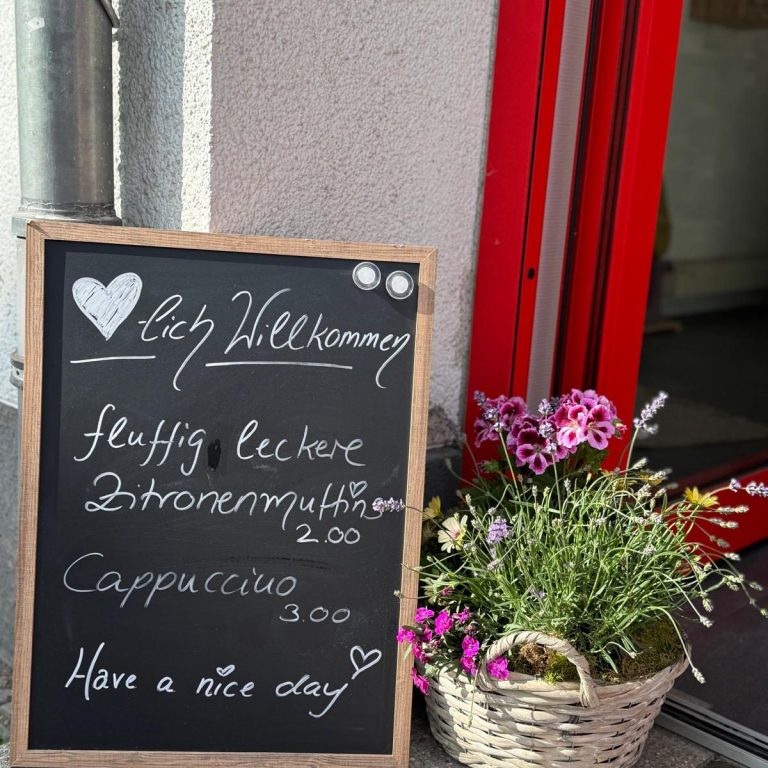 ♥-lich Willkommen
fluffig leckere
Zitronenmuffins
2.00
Cappuccino
3.00
Have a nice day ♡